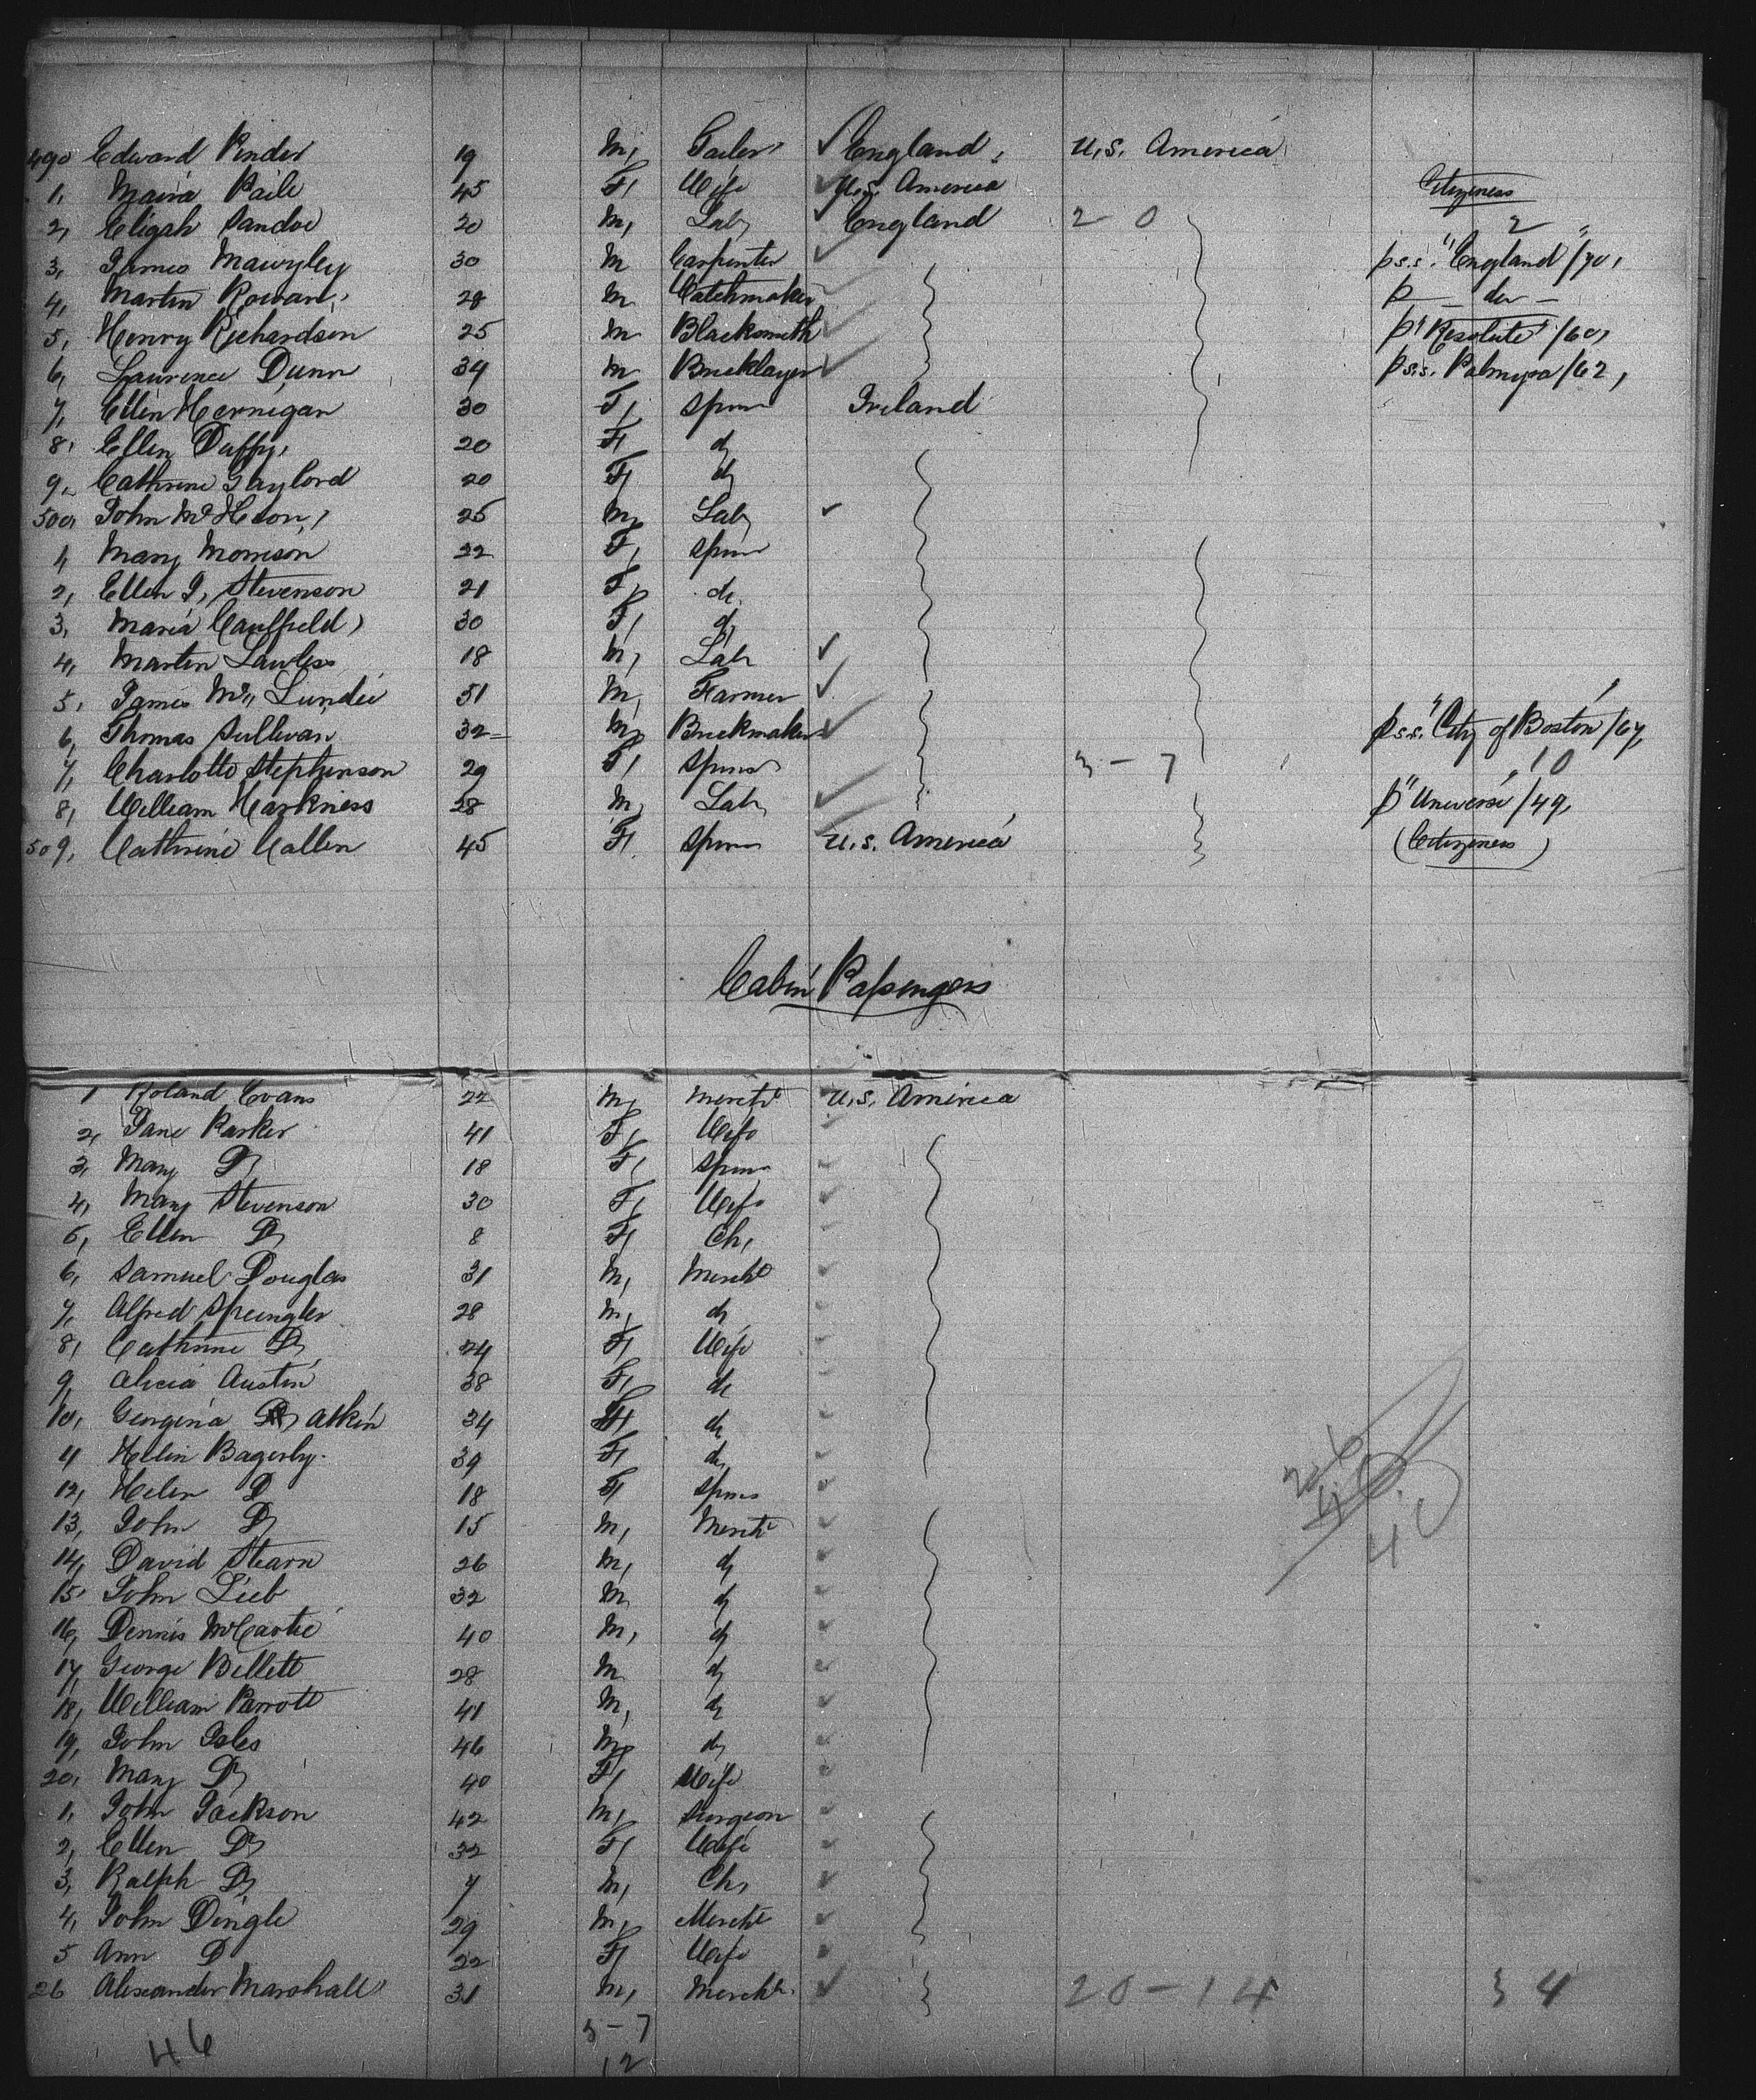 490 Edward Pinder 19 M, Tailor England, U.S. America
1, Maria Paile 45 F, Wife U.S. America Citizeness
2, Eligah Sandoe 20 M, Lab, England 2 0 2
3, James Mawyley 30 M Carpenter p s.s. "England" /70,
4, Martin Rowan, 28 M Watchmaker p — do —
5, Henry Richardson 25 M Blacksmith p "Resolute" /60,
6, Lawrence Dunn 34 M Bricklayer p s.s. Palmyra /62,
7, Ellen Hernigan 30 F, Spinr Ireland
8, Ellen Duffy, 20 F, do
9, Cathrine Gaylord 20 F, do
500, John McHeon, 25 M, Lab,
1, Mary Morrison 22 F, Spinr
2, Ellen J, Stevenson 21 F, do
3, Maria Caulfield, 30 F, do
4, Martin Lawless 18 M, Labr
5, James Mc, Lundie 51 M, Farmer
6, Thomas Sullivan 32 M, Brickmaker p s.s. "City of Boston /67,
7, Charlotte Stephenson 29 F, Spinr 3 - 7 10
8, William Harkness 28 M, Lab, p "Universe /49,
509, Cathrine Callen 45 F, Spinr U.S. America (Citizeness)
Cabin Passengers
1 Roland Evans 22 M, Mercht U.S. America
2, Jane Parker 41 F, Wife
3, Mary Do 18 F, Spinr
4, Mary Stevenson 30 F, Wife
5, Ellen Do 8 F, Ch,
6, Samuel Douglas 31 M, Mercht
7, Alfred Speengler 28 M, do
8, Cathrine Do 24 F, Wife
9, Alicia Austin 38 F, do
10, Georgina Atkin 34 F, do
11 Hellin Bagerly 39 F, do
12, Helen D 18 F, Spinr
13, John Do 15 M, Mercht
14, David Stearn 26 M, do
15, John Lieb 32 M, do
16, Dennis McCartie 40 M, do
17, George Billett 28 M do
18, William Parrott 41 M, do
19, John Isles 46 M, do
20, Mary Do 40 F, Wife
1, John Jackson 42 M, Surgeon
2, Ellen Do 32 F, Wife
3, Ralph Do 7 M, Ch,
4, John Dingle 29 M, Mercht
5 Ann D 22 F, Wife
26 Alexander Marshall 31 M, Mercht 20 - 14 3 4
46 5 - 7
12